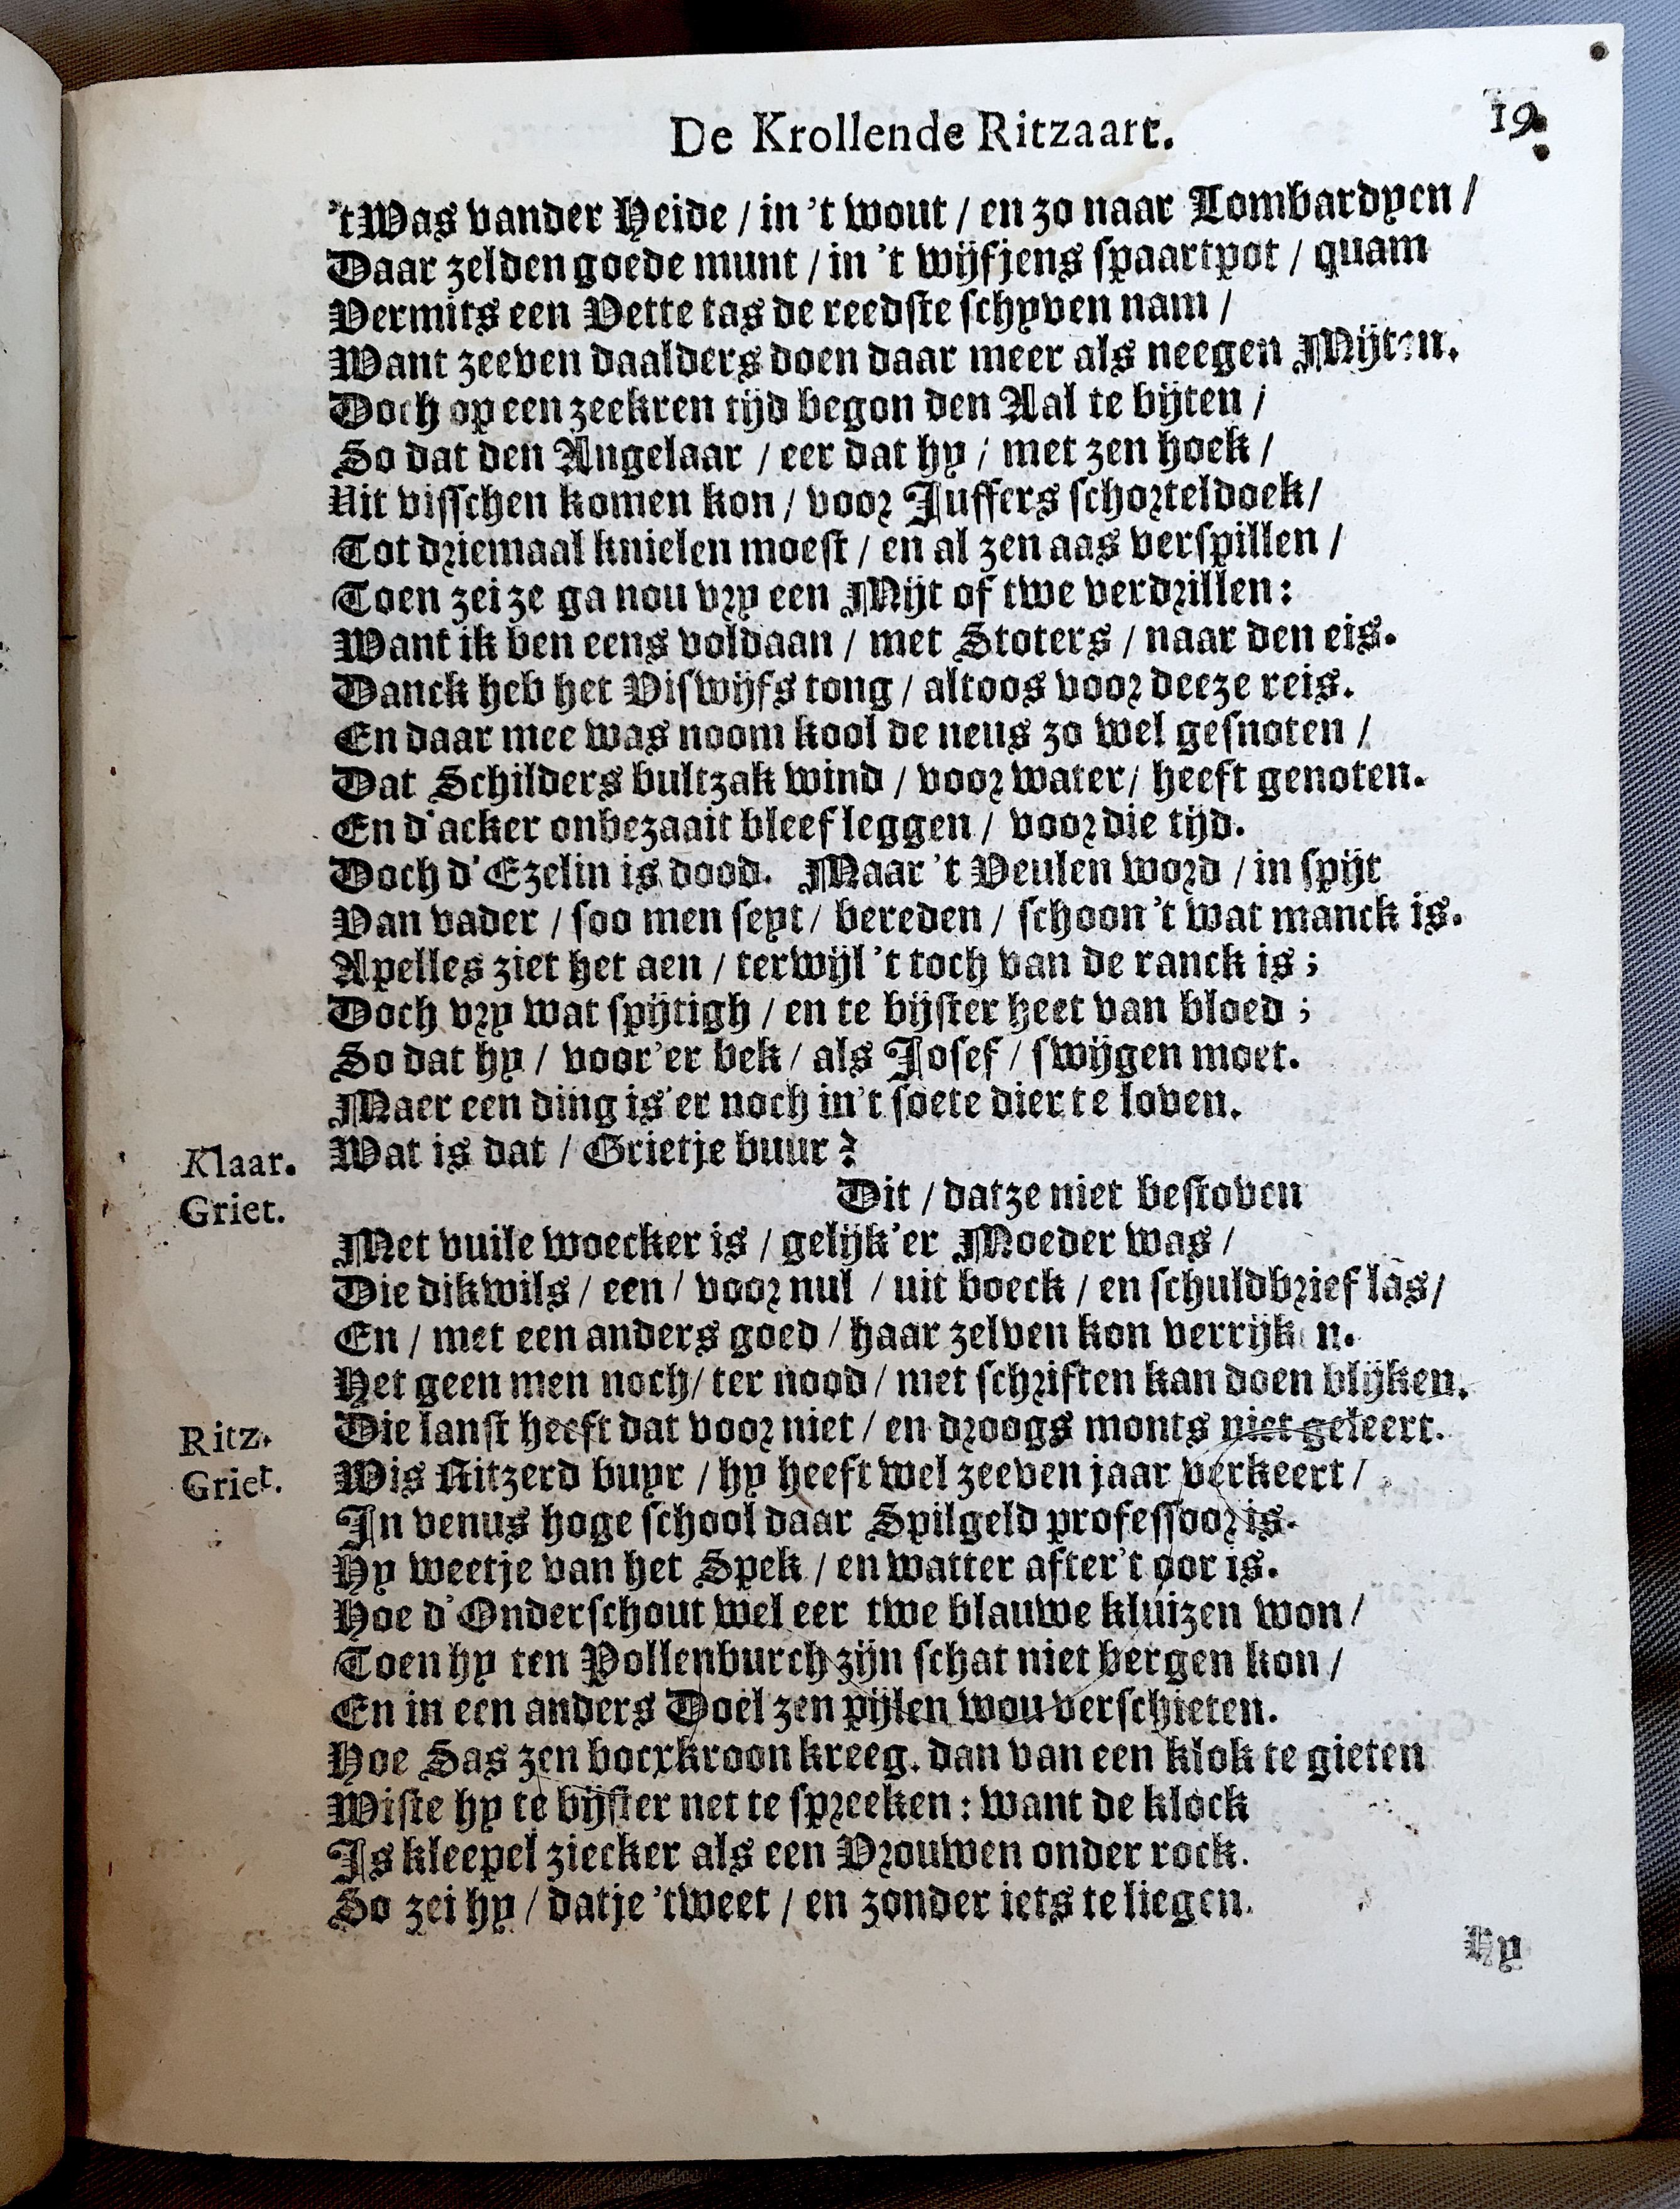 De Krollende Ritzaart. 19.
't Was vander Heide / in 't wout / en zo naar Lombardyen /
Daar zelden goede munt / in 't wijfjens spaartpot / quam
Vermits een Vette tas de reedste schyven nam /
Want zeeven daalders doen daar meer als neegen Mijten.
Doch op een zeekren tijd begon den Aal te bijten /
So dat den Angelaar / eer dat hy / met zen hoek /
Uit visschen komen kon / voor Juffers schorteldoek /
Tot driemaal knielen moest / en al zen aas verspillen /
Toen zeize ga nou vry een Mijt of twe verdrillen:
Want ik ben eens voldaan / met Stoters / naar den eis.
Danck heb het Viswijfs tong / altoos voor deeze reis.
En daar mee was noom kool de neus zo wel gesnoten /
Dat Schilders bultzak wind / voor water / heeft genoten.
En d'acker onbezaait bleef leggen / voor die tijd.
Doch d'Ezelin is dood. Maar 't Veulen word / in spijt
Van vader / soo men seyt / bereden / schoon 't wat manck is.
Apelles ziet het aen / terwijl 't toch van de ranck is ;
Doch vry wat spijtigh / en te bijster heet van bloed ;
So dat hy / voor'er bek / als Josef / swijgen moet.
Maer een ding is'er noch in't soete dier te loven.
Klaar. Wat is dat / Grietje buur ?
Griet. Dit / datze niet bestoven
Met vuile woecker is / gelijk'er Moeder was /
Die dikwils / een / voor nul / uit boeck / en schuldbrief las /
En / met een anders goed / haar zelven kon verrijken.
Het geen men noch / ter nood / met schriften kan doen blijken.
Ritz. Die lanst heeft dat voor niet / en droogs monts niet geleert.
Griet. Wis Ritzerd buyr / hy heeft wel zeeven jaar verkeert /
In venus hoge school daar Spilgeld professoor is.
Hy weetje van het Spek / en watter after't oor is.
Hoe d'Onderschout wel eer twe blauwe kluizen won /
Toen hy ten Pollenburch zijn schat niet bergen kon /
En in een anders Doel zen pijlen wou verschieten.
Hoe Sas zen bocxkroon kreeg. dan van een klok te gieten
Wiste hy te bijster net te spreeken : want de klock
Is kleepel ziecker als een Vrouwen onder rock.
So zei hy / datje 'tweet / en zonder iets te liegen.
Hy